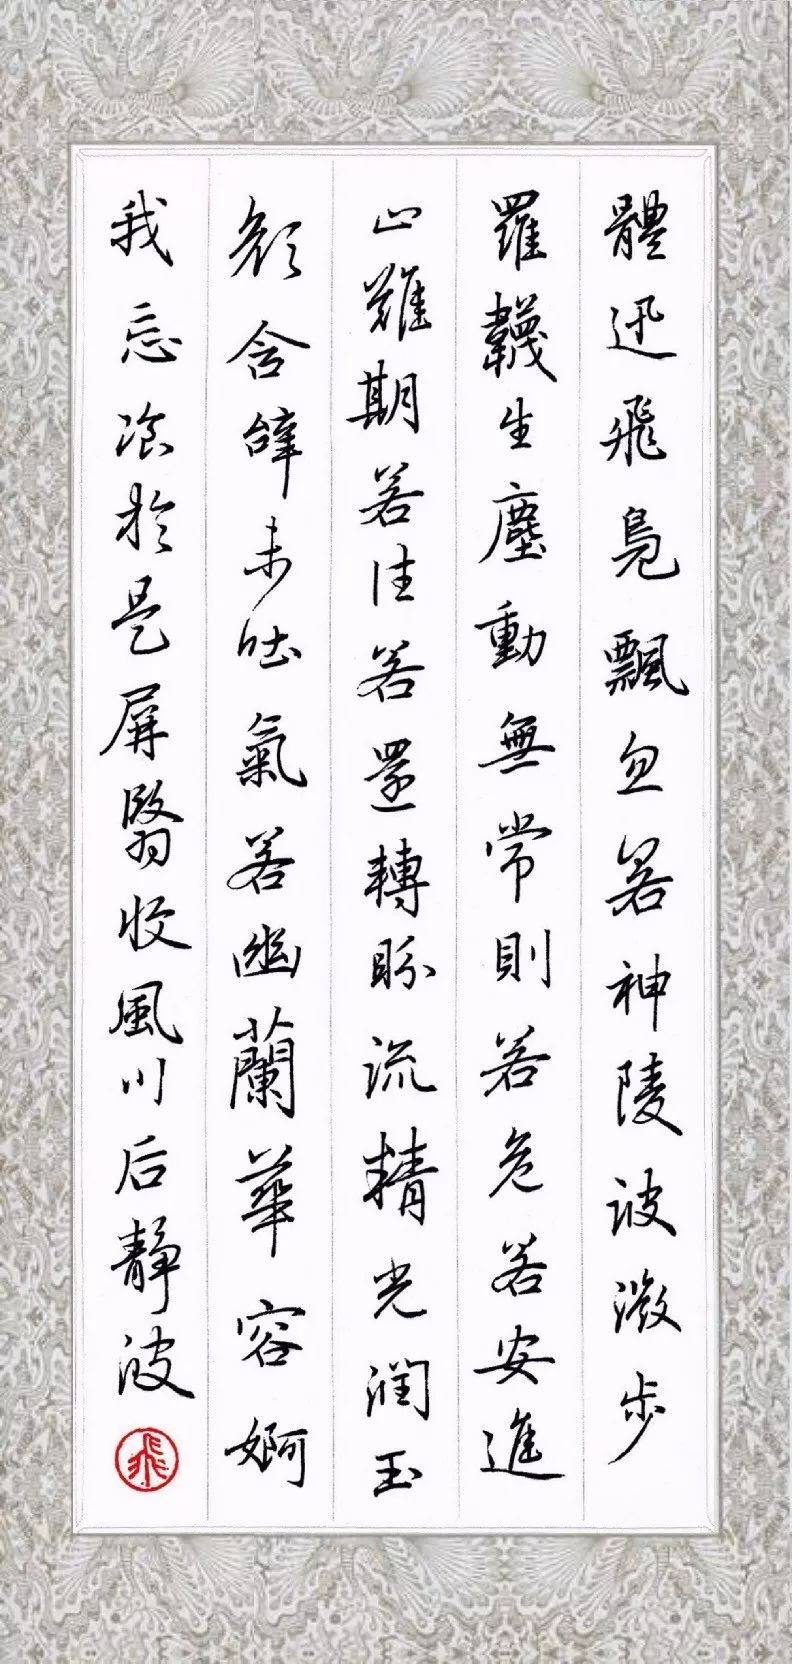 體迅飛鳧飄忽若神陵波微步
羅韈生塵動無常則若危若安進
止難期若往若還轉眄流精光潤玉
顏含辭未吐氣若幽蘭華容婀
我忘飡於是屏翳收風川后靜波
飛